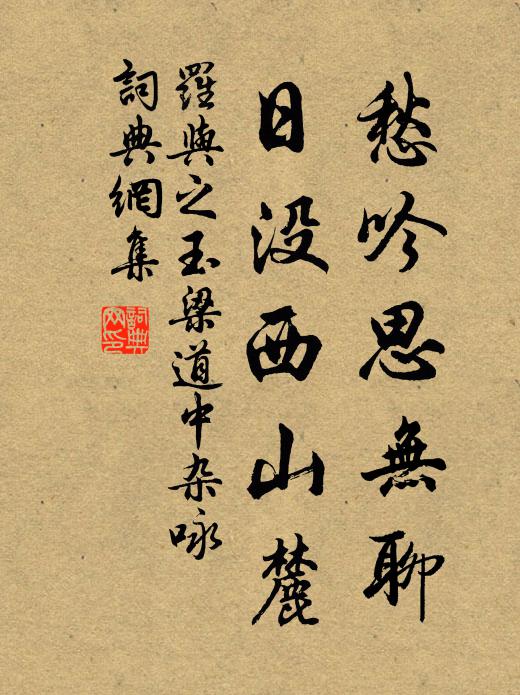 愁吟思無聊
日没西山麓
羅與之玉梁道中杂咏
詞典網集
詞典网印